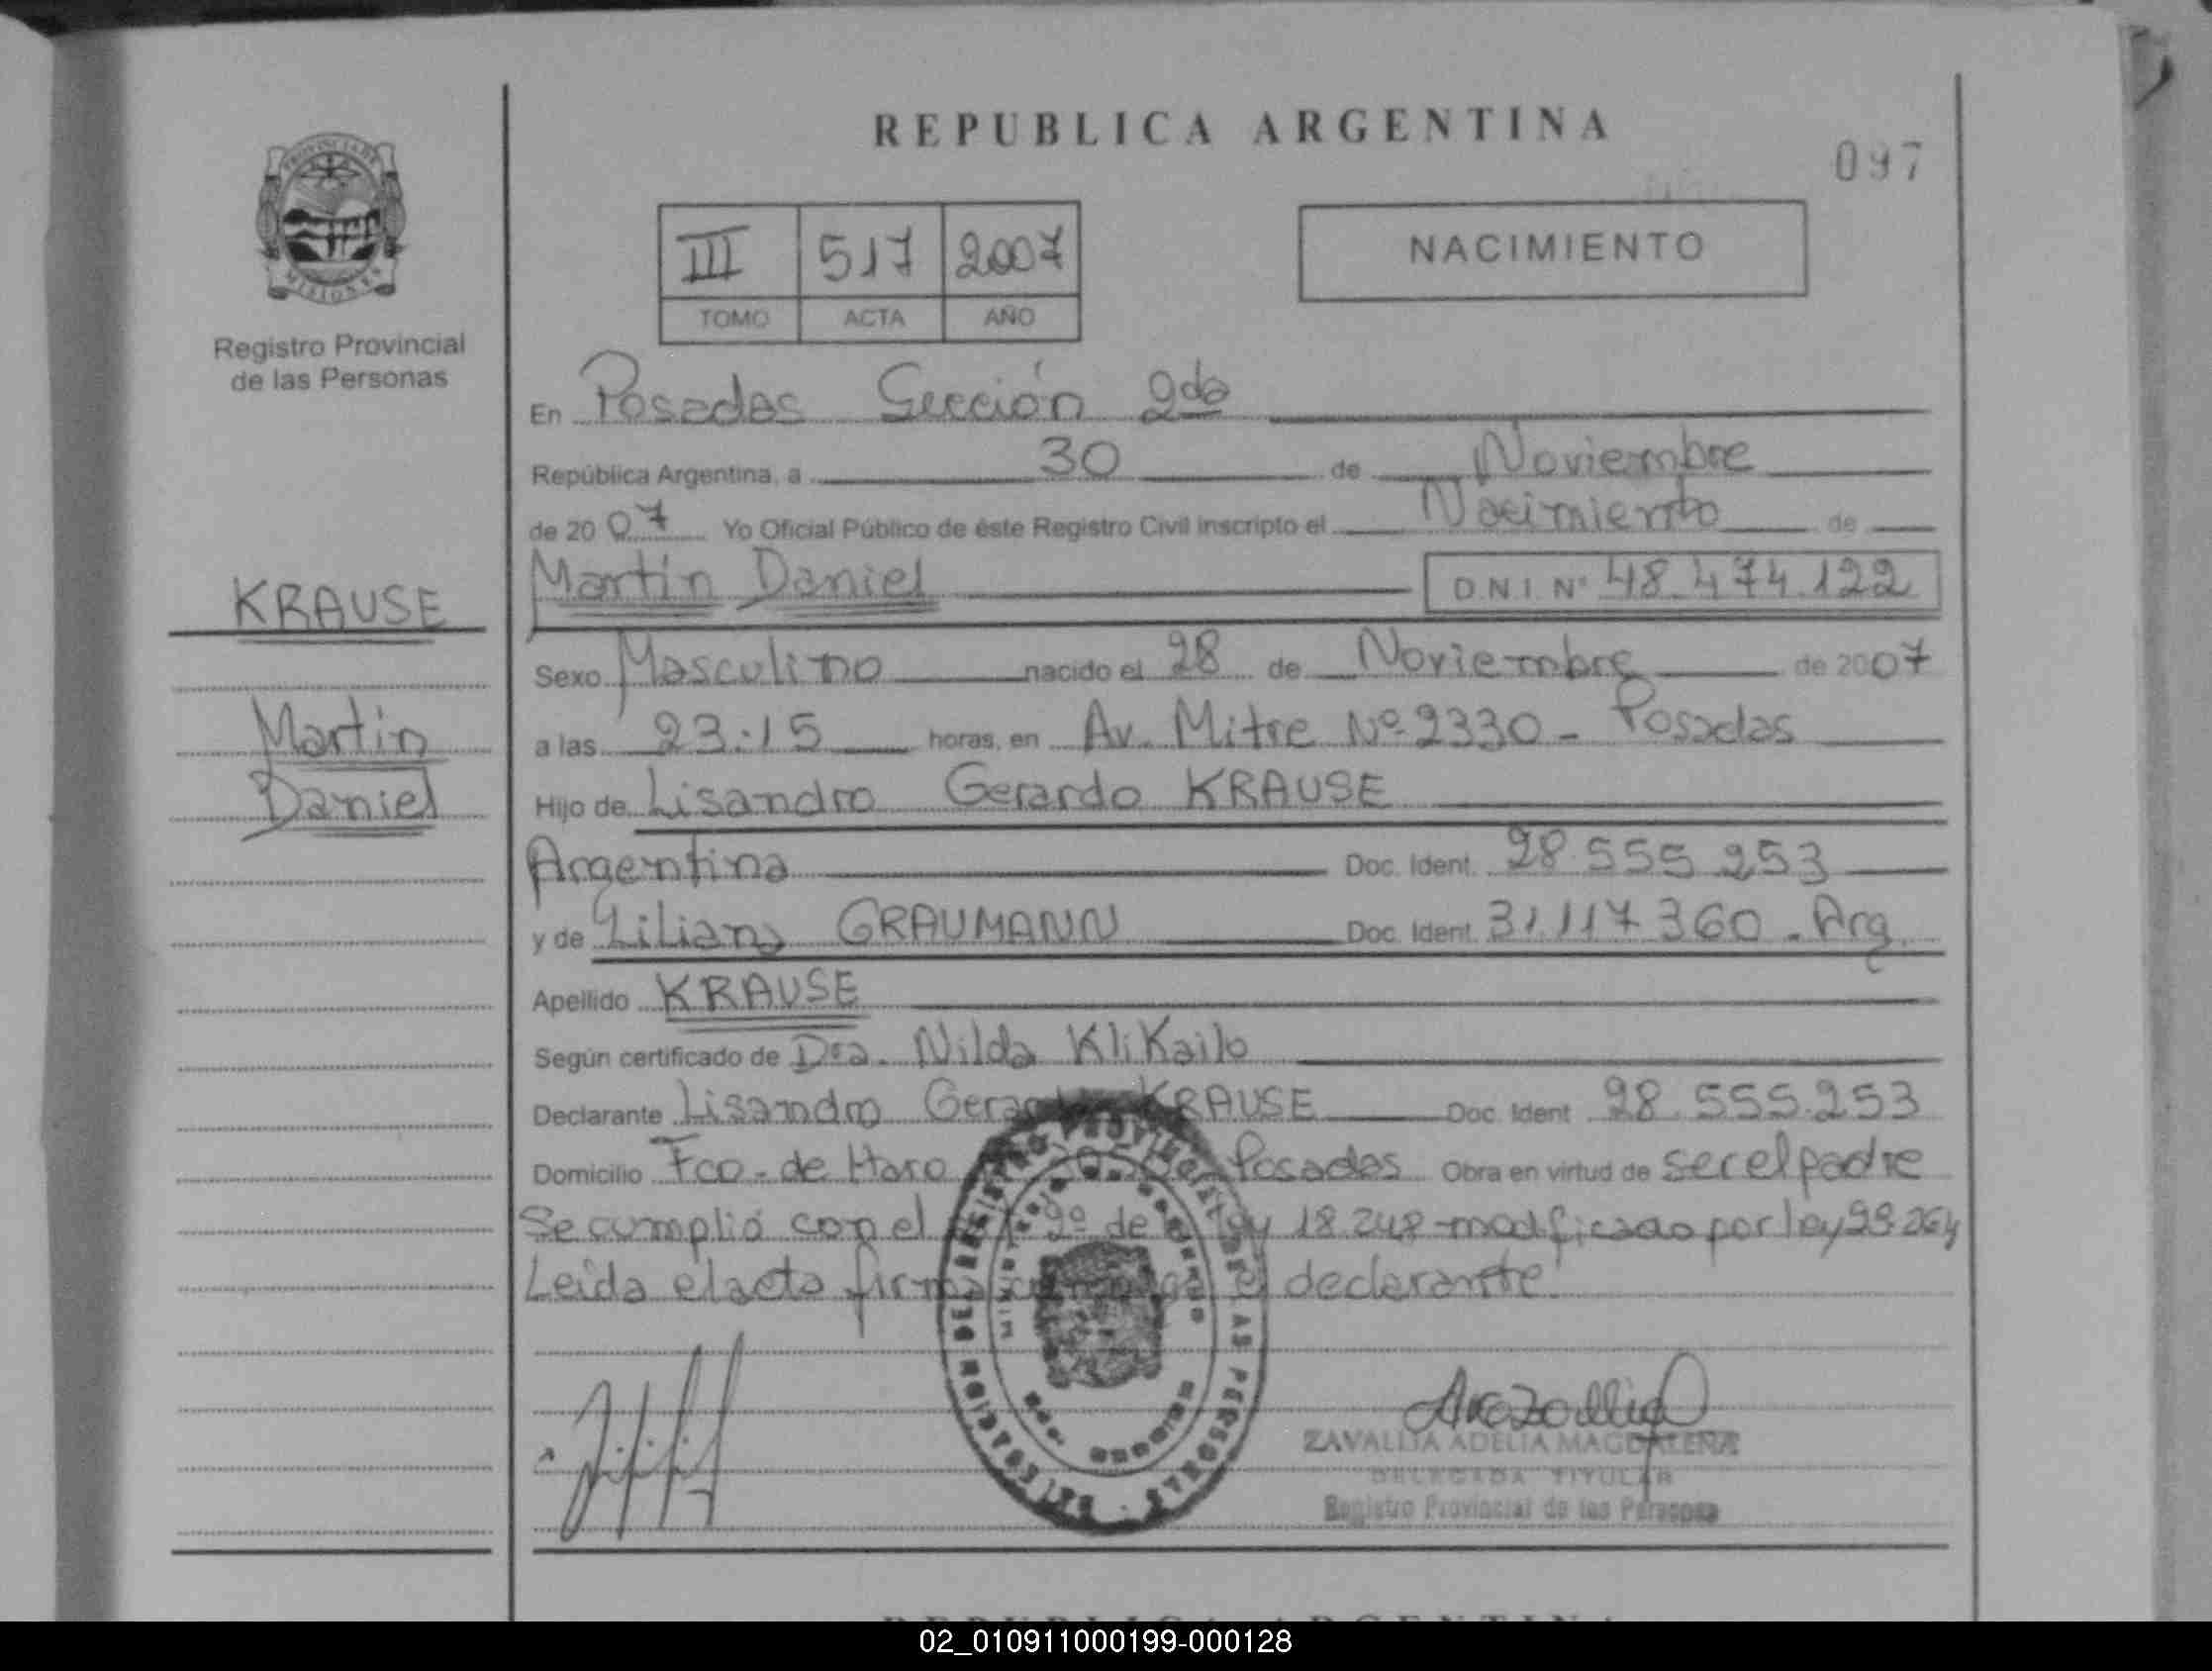 REPUBLICA ARGENTINA
097
PROVINCIA DE
MISIONES
Registro Provincial
de las Personas
III 517 2007
TOMO ACTA AÑO
NACIMIENTO
En Posadas Sección 2da
República Argentina, a 30 de Noviembre
de 2007 Yo Oficial Público de éste Registro Civil inscripto el Nacimiento de
Martín Daniel D.N.I. Nº 48.474.122
KRAUSE
Martín
Daniel
Sexo Masculino nacido el 28 de Noviembre de 2007
a las 23:15 horas, en Av. Mitre Nº 2330 - Posadas
Hijo de Lisandro Gerardo KRAUSE
Argentina Doc. Ident. 28.555.253
y de Liliana GRAUMANN Doc. Ident. 31.117.360 - Arg.
Apellido KRAUSE
Según certificado de Dra. Nilda KliKailo
Declarante Lisandro Gerardo KRAUSE Doc. Ident 28.555.253
Domicilio Fco. de Haro Posadas Obra en virtud de ser el padre
Se cumplió con el 2º de ley 18.248 modificado por ley 23.264
Leida el acta firma el declarante.
REGISTRO PROVINCIAL DE LAS PERSONAS
ZAVALLIA ADELIA MAGDALENA
DELEGADA TITULAR
Registro Provincial de las Personas
REPUBLICA ARGENTINA
02_010911000199-000128